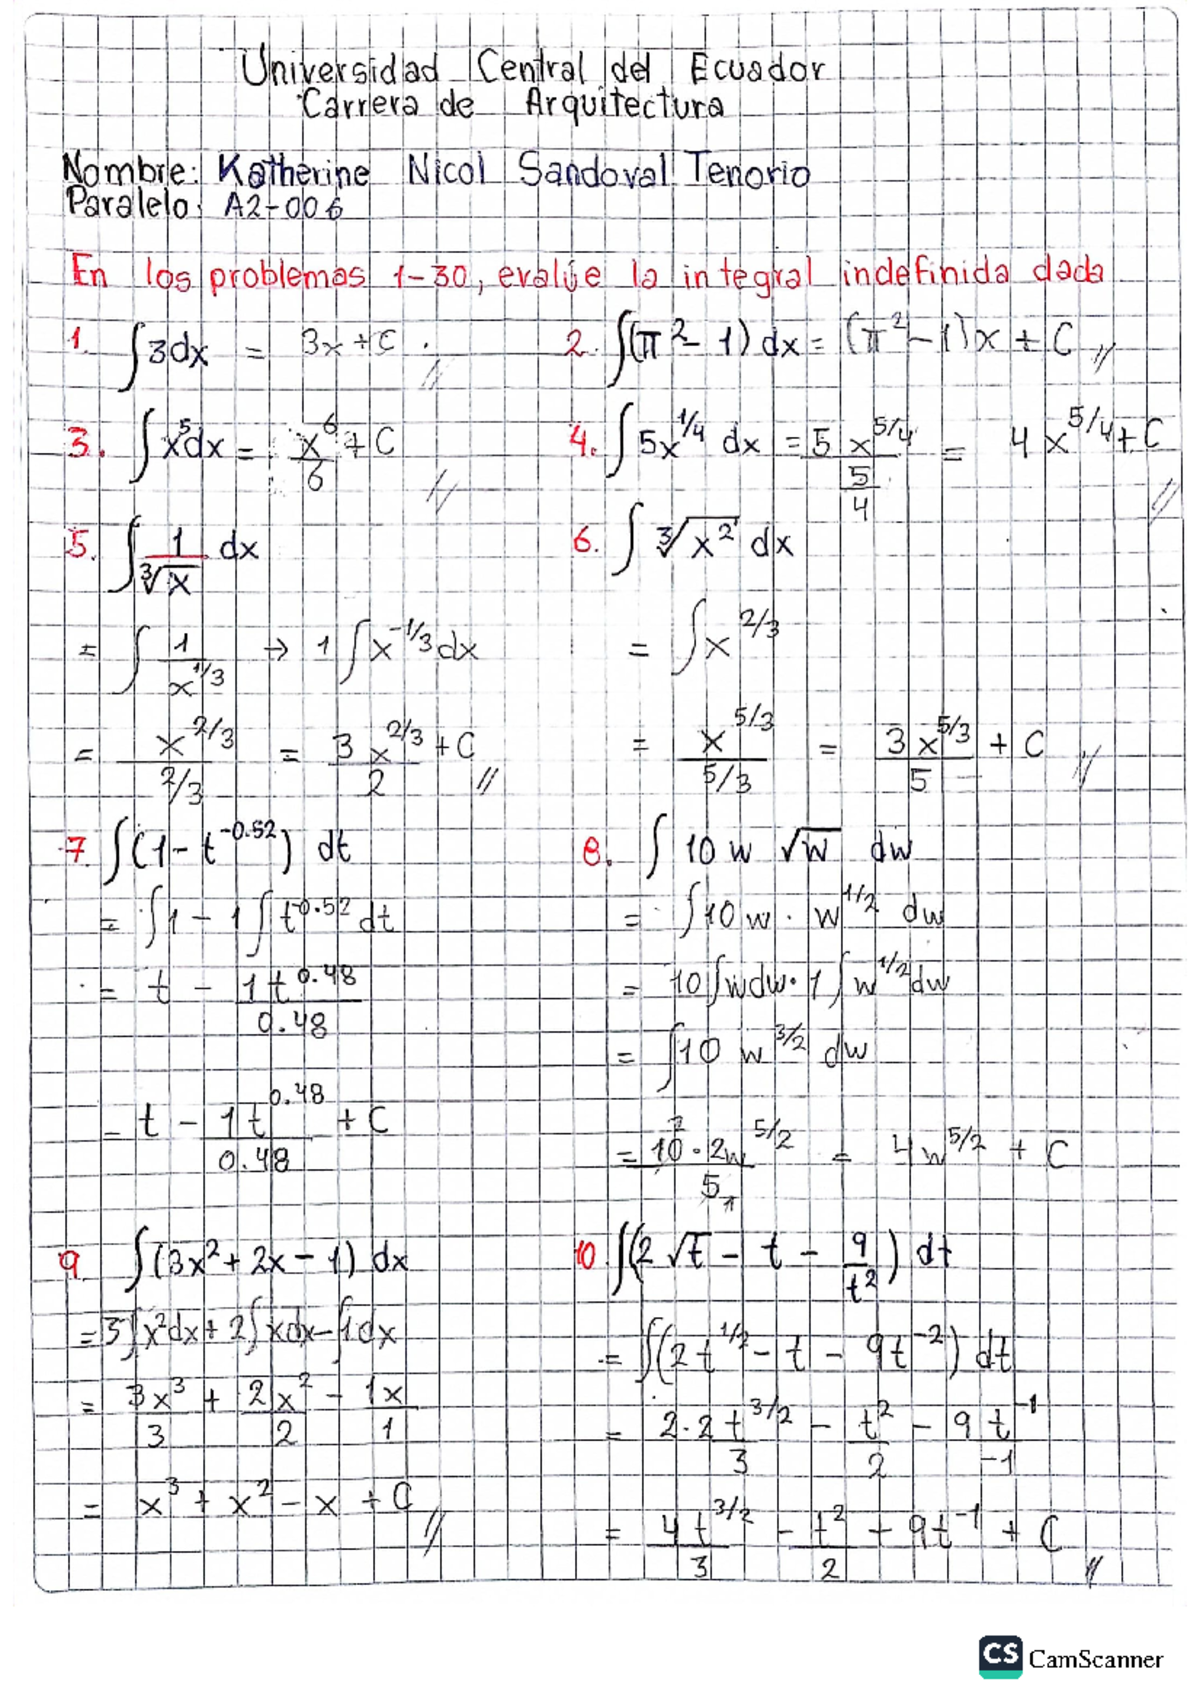 Universidad Central del Ecuador
Carrera de Arquitectura
Nombre: Katherine Nicol Sandoval Tenorio
Paralelo: A2-006
En los problemas 1-30, evalúe la integral indefinida dada
1. ∫3dx = 3x + C //
2. ∫(π² - 1) dx = (π² - 1)x + C //
3. ∫x⁵dx = x⁶/6 + C //
4. ∫5x^(1/4) dx = 5 x^(5/4)/(5/4) = 4x^(5/4) + C //
5. ∫ 1/∛x dx
= ∫ 1/x^(1/3) → 1∫x^(-1/3)dx
= x^(2/3)/(2/3) = 3x^(2/3)/2 + C //
6. ∫ ∛(x²) dx
= ∫x^(2/3)
= x^(5/3)/(5/3) = 3x^(5/3)/5 + C //
7. ∫(1 - t^(-0.52)) dt
= ∫1 - 1∫t^(-0.52) dt
= t - 1t^(0.48)/0.48
= t - 1t^(0.48)/0.48 + C
8. ∫ 10 w √w dw
= ∫10 w · w^(1/2) dw
= 10∫wdw · 1∫w^(1/2)dw
= ∫10 w^(3/2) dw
= 10 · 2w^(5/2)/5 = 4w^(5/2) + C
9. ∫(3x² + 2x - 1) dx
= 3∫x²dx + 2∫xdx - ∫1dx
= 3x³/3 + 2x²/2 - 1x/1
= x³ + x² - x + C //
10. ∫(2√t - t - 9/t²) dt
= ∫(2t^(1/2) - t - 9t^(-2)) dt
= 2·2t^(3/2)/3 - t²/2 - 9t^(-1)/-1
= 4t^(3/2)/3 - t²/2 + 9t^(-1) + C //
CS CamScanner